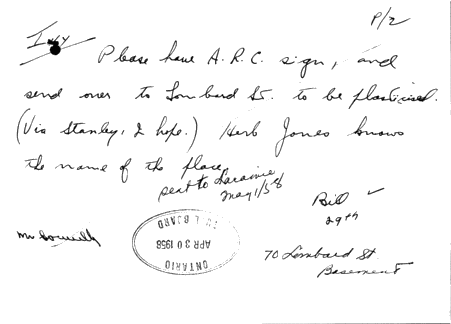 P/2
Please have A.R.C. sign, and
send over to Lombard St. to be plasticised.
(Via Stanley, I hope.) Herb Jones knows
the name of the place.
sent to
May 1/58
Bill ✓
29th
70 Lombard St.
Basement
ONTARIO
APR 30 1958